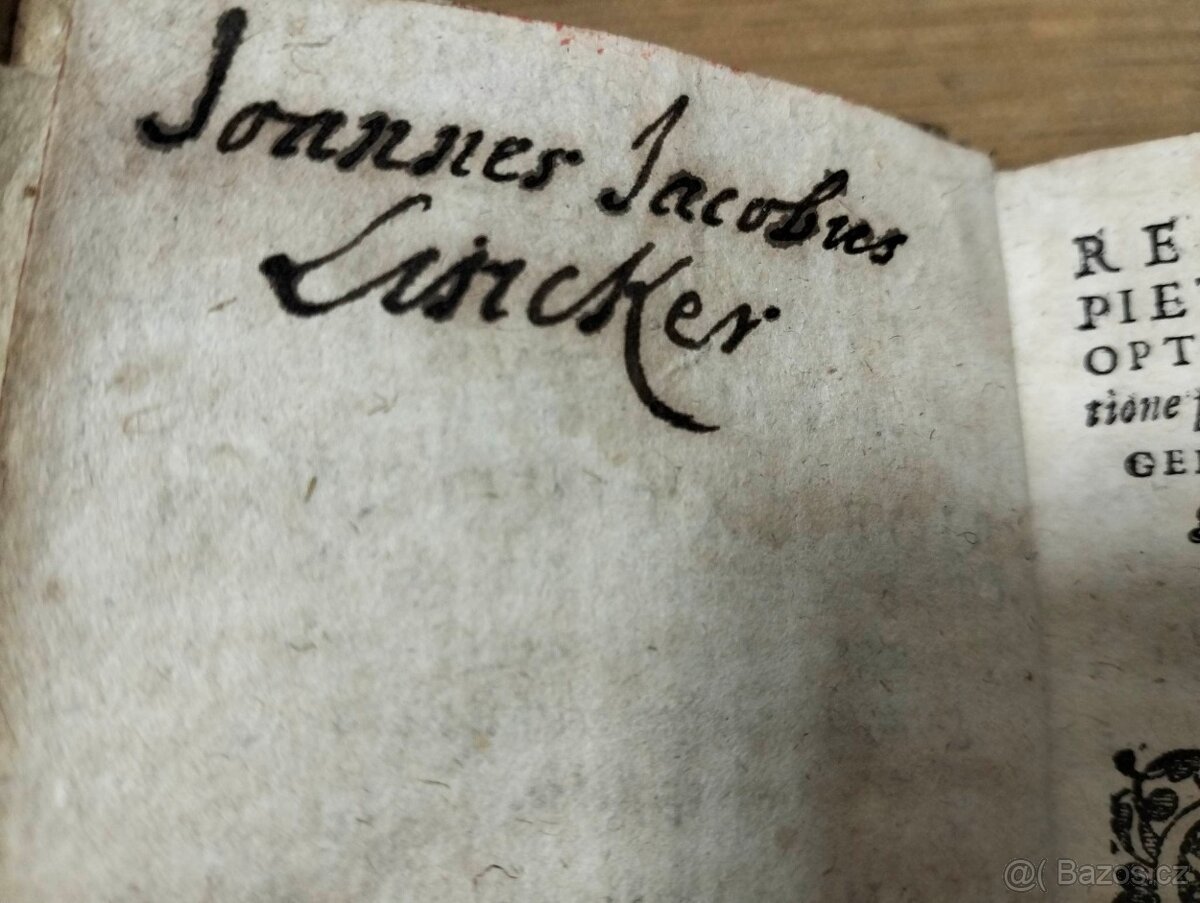 Joannes Jacobus
Lincker
RE
PIET
OPT
tione
GE
@( Bazos.cz